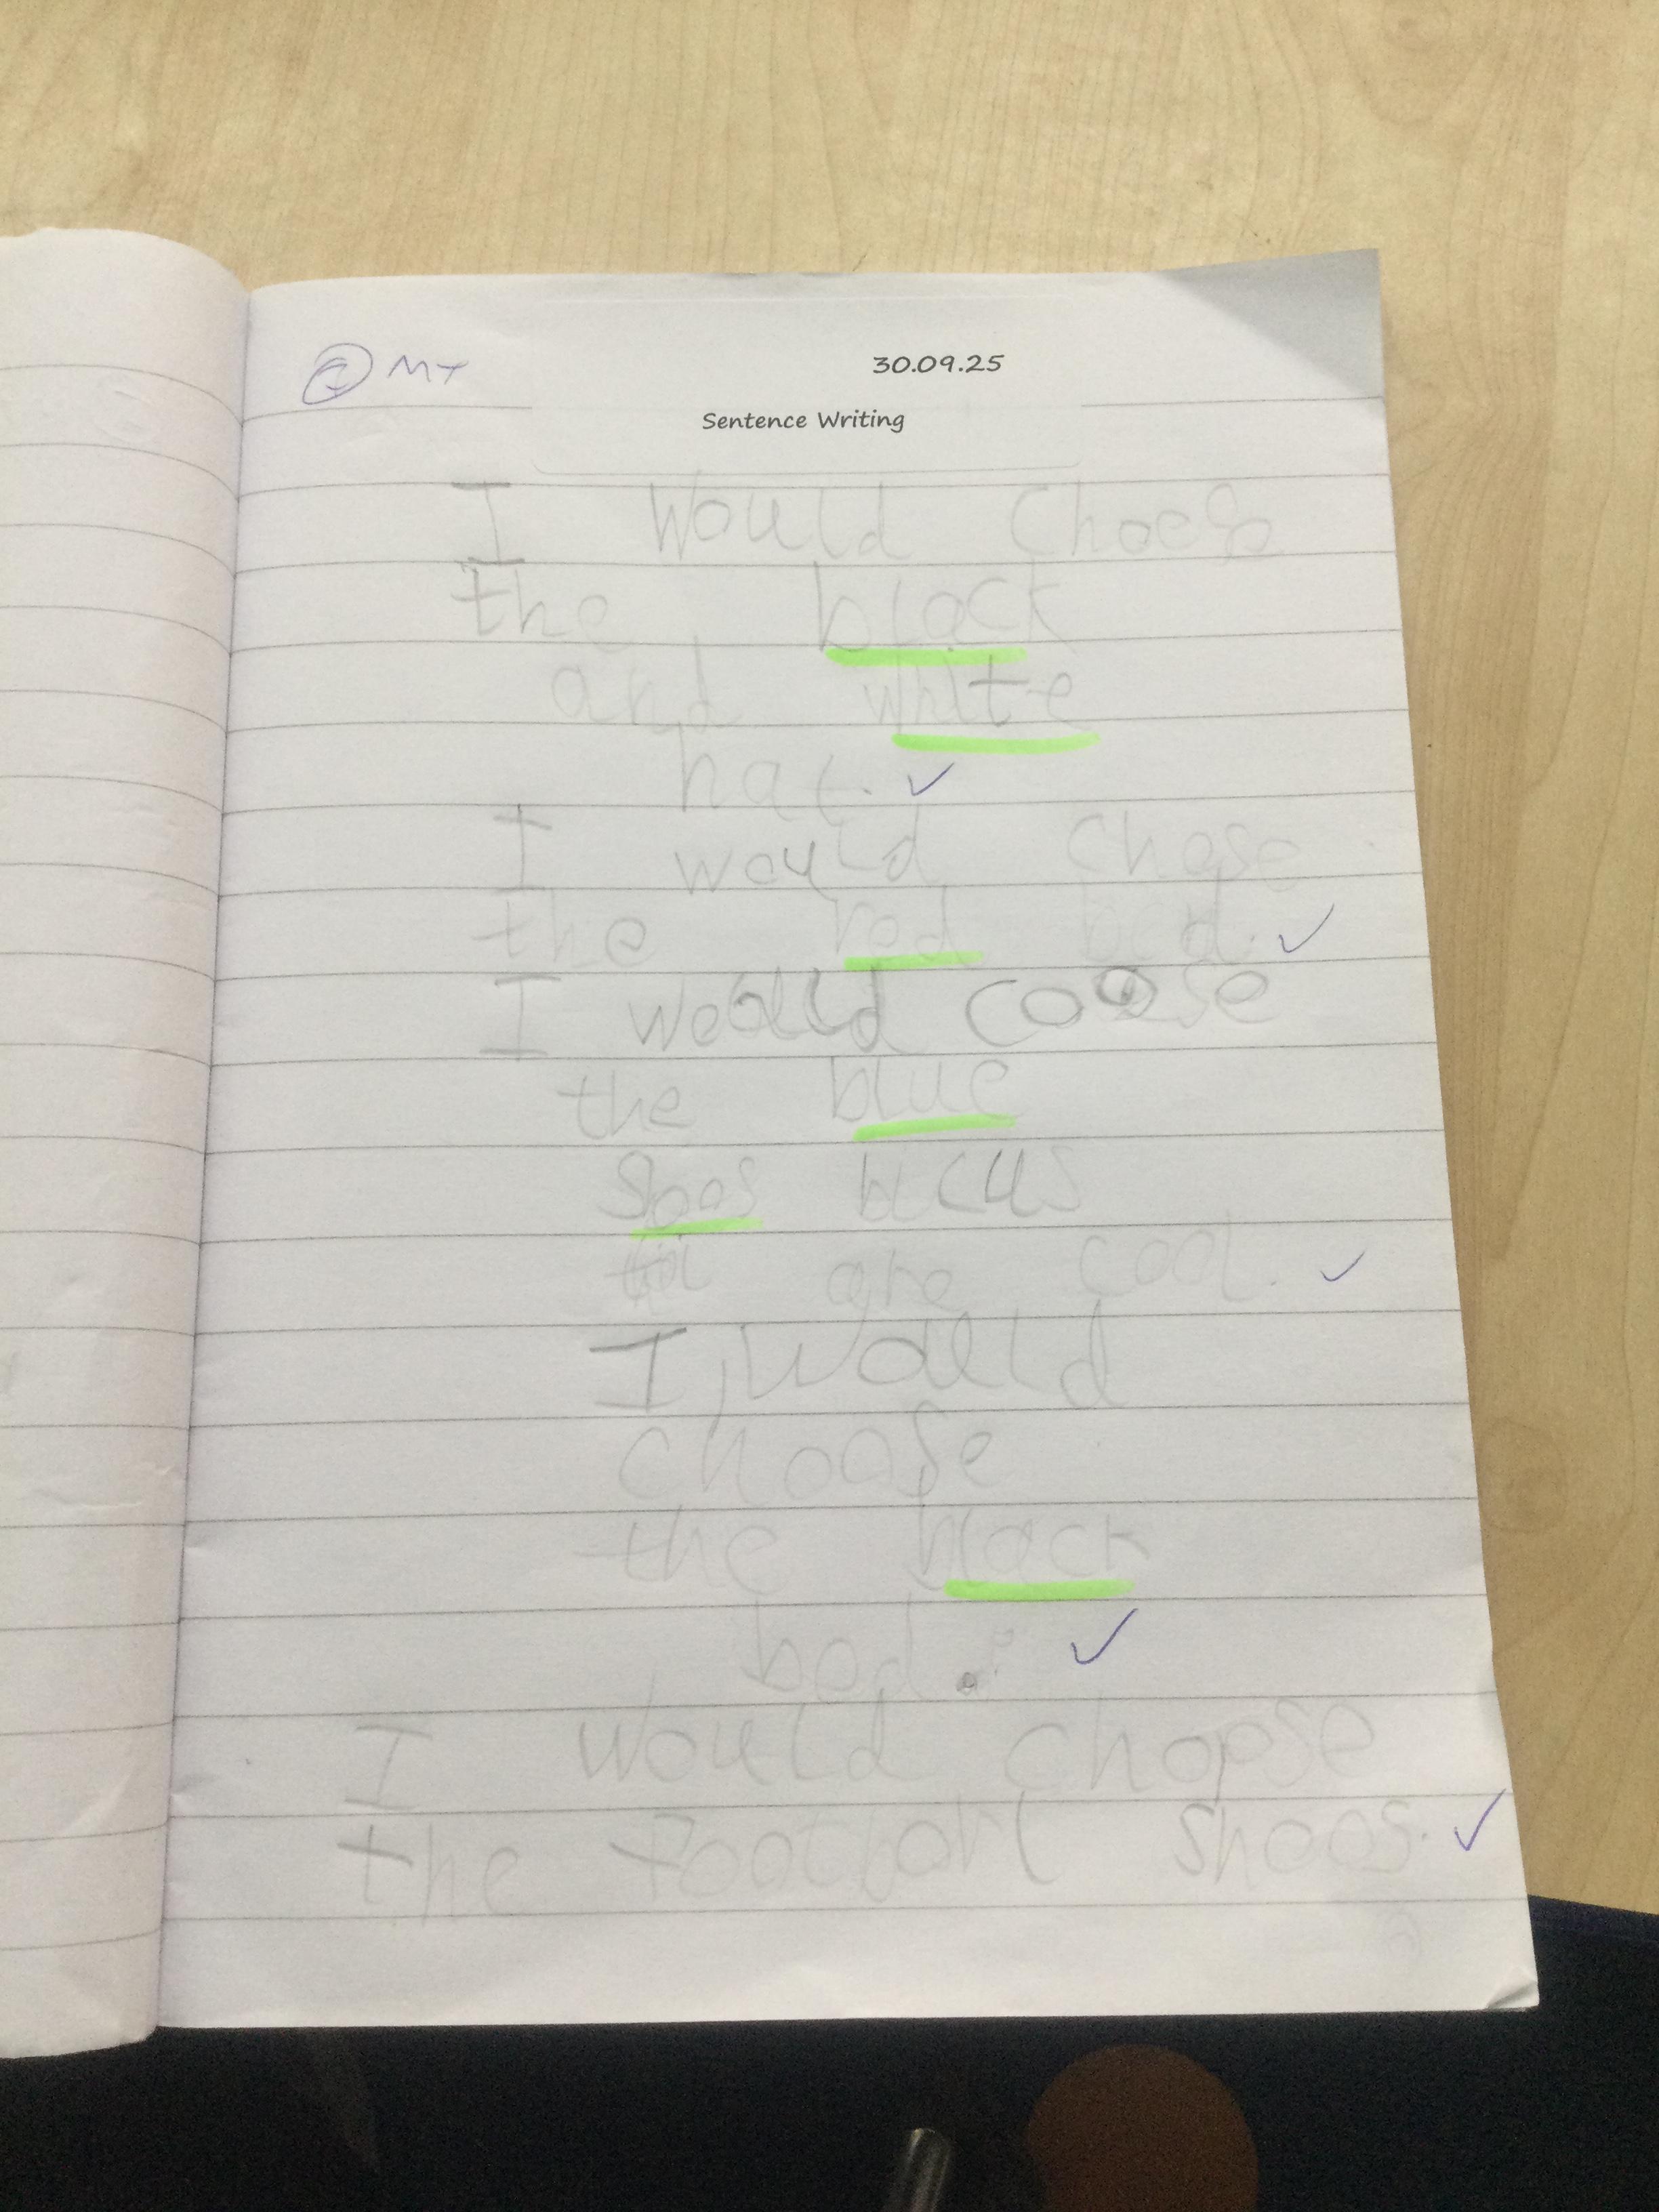 MT
30.09.25
Sentence Writing
I would choes
the black
and white
hat.
I would chose
the red bed.
I would coose
the blue
Shos bcus
are cool.
I would
choose
the black
bed.
I would choose
the football shoos.